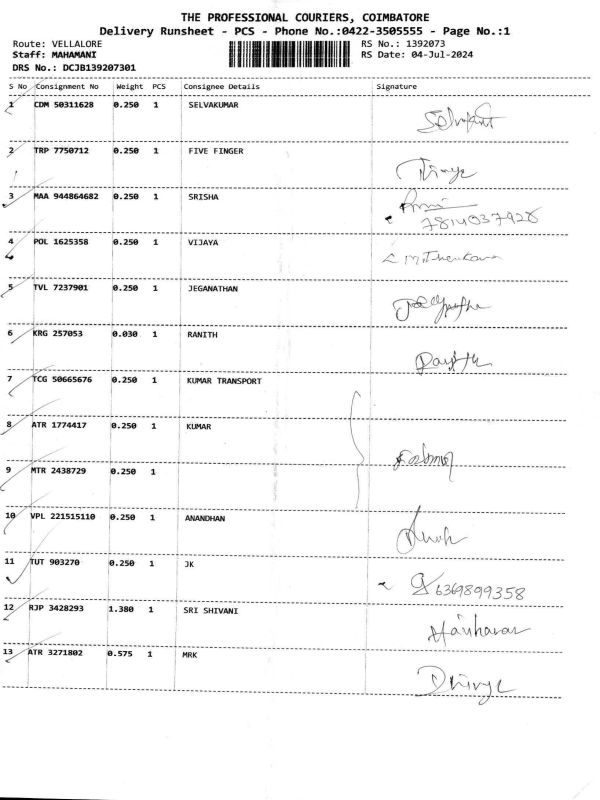 THE PROFESSIONAL COURIERS, COIMBATORE
Delivery Runsheet - PCS - Phone No.:0422-3505555 - Page No.:1
Route: VELLALORE RS No.: 1392073
Staff: MAHAMANI RS Date: 04-Jul-2024
DRS No.: DCJB139207301
S No Consignment No Weight PCS Consignee Details Signature
1 CDM 50311628 0.250 1 SELVAKUMAR
2 TRP 7750712 0.250 1 FIVE FINGER
3 MAA 944864682 0.250 1 SRISHA
7814037928
4 POL 1625358 0.250 1 VIJAYA
5 TVL 7237901 0.250 1 JEGANATHAN
6 KRG 257053 0.030 1 RANITH
7 TCG 50665676 0.250 1 KUMAR TRANSPORT
8 ATR 1774417 0.250 1 KUMAR
9 MTR 2438729 0.250 1
10 VPL 221515110 0.250 1 ANANDHAN
11 TUT 903270 0.250 1 JK
6369899358
12 RJP 3428293 1.380 1 SRI SHIVANI
Hariharan
13 ATR 3271802 0.575 1 MRK